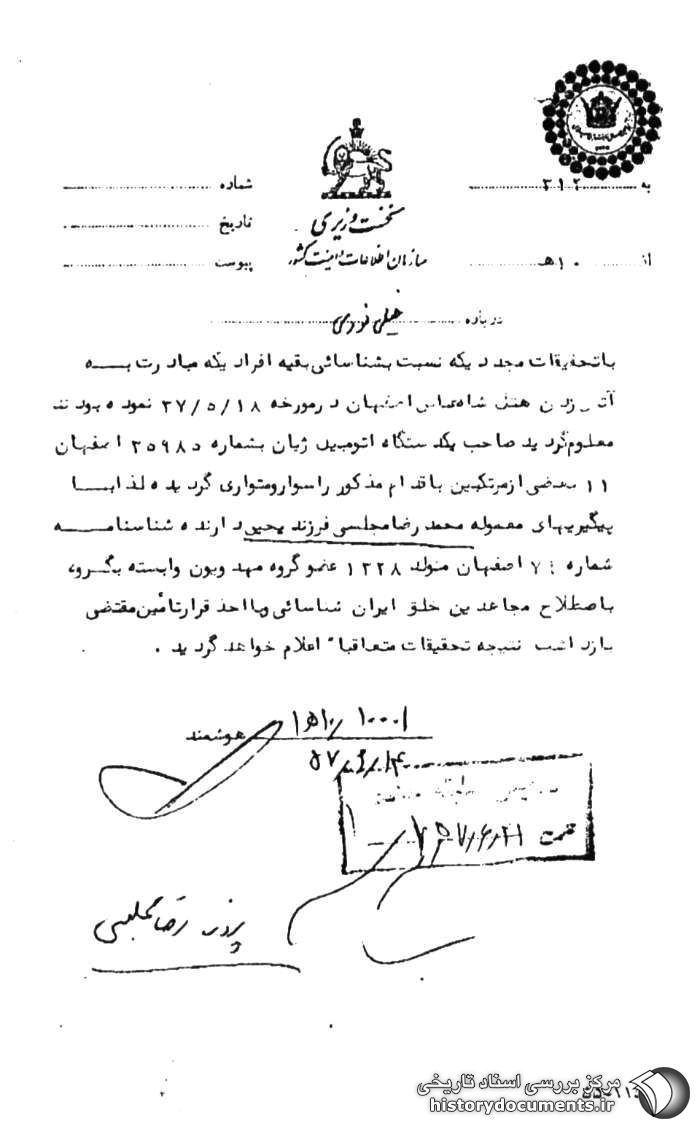 به ۳۱۲
شماره
نخست وزیری
تاریخ
سازمان اطلاعات و امنیت کشور
از ۱۰ هـ
پیوست
درباره خیلی فوری
باتحقیقات مجدد یکه نسبت بشناسائی بقیه افراد یکه مبادرت بـــه
آتش زدن هتل شاه عباس اصفهان درمورخه ۳۷/۵/۱۸ نموده بودند
معلوم گردید صاحب یکدستگاه اتومبیل ژیان بشماره ۲۵۹۸۵ اصفهان
۱۱ بعضی ازمرتکبین باقدام مذکور راسوارومتواری گردیده لذا بـا
پیگیریهای معموله محمد رضا مجلسی فرزند یحیی دارنده شناسنامـــه
شماره ۷۰ اصفهان متولد ۱۳۲۸ عضو گروه مهدویون وابسته بگروه
باصطلاح مجاهدین خلق ایران شناسائی وبااخذ قرارتأمین مقتضی
بازداشت نتیجه تحقیقات متعاقباً اعلام خواهد گردید .
هوشمند
۵۷/۶/۱۴
۵۷/۶/۲۱
پرونده رضا مجلسی
مرکز بررسی اسناد تاریخی
historydocuments.ir